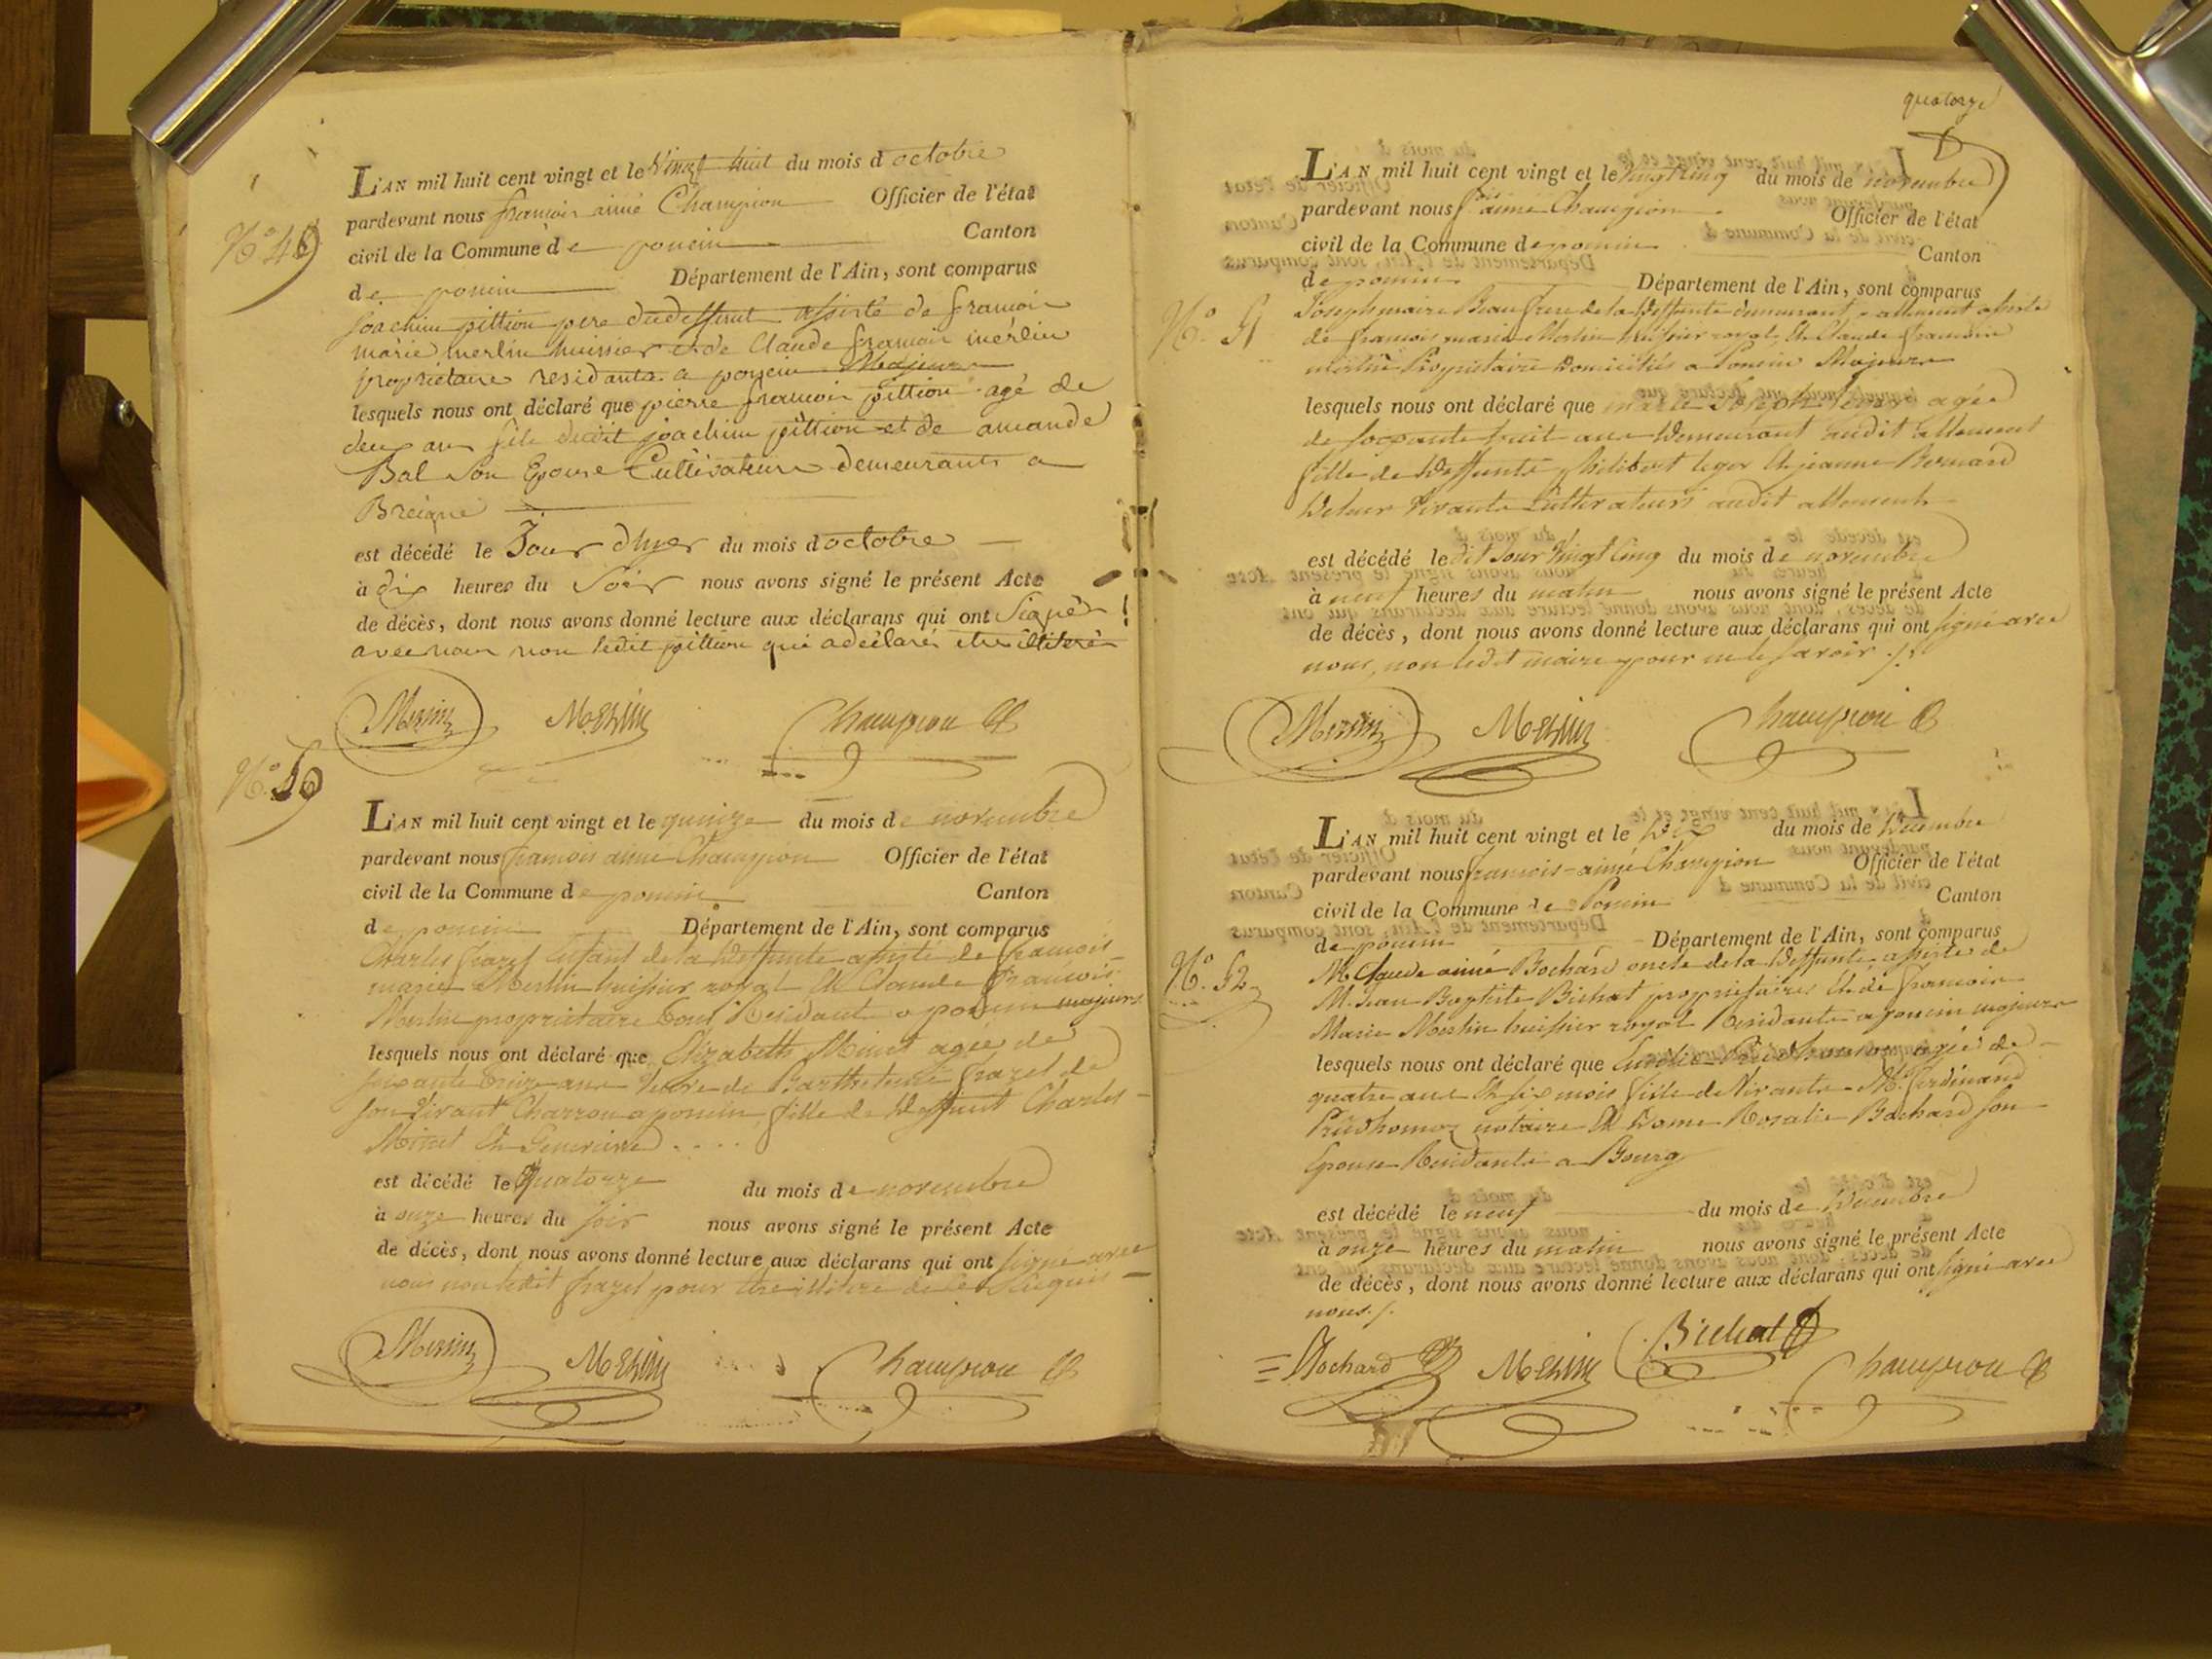 L'AN mil huit cent vingt et le Vingt huit du mois d octobre
pardevant nous françois aimé Champion Officier de l'état
N.º 49
civil de la Commune de poncin Canton
de poncin Département de l'Ain, sont comparus
Joachim pittion pere dudeffunt assisté de françois
marie merlin huissier et de Claude françois merlin
propriétaire residants a poncin Majeurs
lesquels nous ont déclaré que pierre françois pittion agé de
deux ans fils dudit joachim pittion et de amande
Bal son Epouse Cultivateurs demeurants a
Breigne
est décédé le Jour dhyer du mois d octobre
à dix heures du Soir nous avons signé le présent Acte
de décès, dont nous avons donné lecture aux déclarans qui ont Signér
avec nous non ledit pittion qui a déclaré etre illiteré
Merlin Merlin Champion
N.º 50
L'AN mil huit cent vingt et le quinze du mois de novembre
pardevant nous françois aimé Champion Officier de l'état
civil de la Commune de poncin Canton
de poncin Département de l'Ain, sont comparus
Charles frazel Enfant de la deffunte assisté de françois
marie Merlin huissier royal Et Claude françois
Merlin propriétaire tous Residants a poncin majeurs
lesquels nous ont déclaré que Elizabeth Minet agée de
soixante treize ans Veuve de Barthelemi frazel de
son vivant Charron a poncin fille de deffunt Charles
Minet Et Genevieve ....
est décédé le Quatorze du mois de novembre
à onze heures du soir nous avons signé le présent Acte
de décès, dont nous avons donné lecture aux déclarans qui ont signé avec
nous non ledit frazel pour etre illitere de ce Enquis
Merlin Merlin Champion
quatorze
L'AN mil huit cent vingt et le Vingt Cinq du mois de novembre
pardevant nous f. aimé Champion Officier de l'état
civil de la Commune de poncin Canton
de poncin Département de l'Ain, sont comparus
N.º 51
Joseph maire Beau frere de la deffunte demeurant a allement assisté
de françois marie Merlin huissier royal Et Claude françois
merlin Propriétaire domiciliés a Poncin Majeurs
lesquels nous ont déclaré que marie Joseph leger agée
de soixante huit ans demeurant audit allement
fille de deffunts philibert leger Et jeanne Bernard
de leur vivants Cultivateurs audit allement
est décédé le dit jour Vingt Cinq du mois de novembre
à neuf heures du matin nous avons signé le présent Acte
de décès, dont nous avons donné lecture aux déclarans qui ont signé avec
nous, non ledit maire pour ne le savoir ./.
Merlin Merlin Champion
L'AN mil huit cent vingt et le dix du mois de decembre
pardevant nous francois-aimé Champion Officier de l'état
civil de la Commune de Poncin Canton
de poncin Département de l'Ain, sont comparus
N.º 52
M. Claude aimé Bochard oncle de la deffunte assisté de
M. Jean Baptiste Bichat propriétaires Et de françois
Marie Merlin huissier royal Residants a poncin majeurs
lesquels nous ont déclaré que Prudhomoz agée de
quatre ans Et six mois fille de Vivants M. ferdinand
Prudhomoz notaire Et Dame Rosalie Bochard son
Epouse Residants a Bourg
est décédé le neuf du mois de decembre
à onze heures du matin nous avons signé le présent Acte
de décès, dont nous avons donné lecture aux déclarans qui ont signé avec
nous ./.
Bochard Merlin Bichat Champion